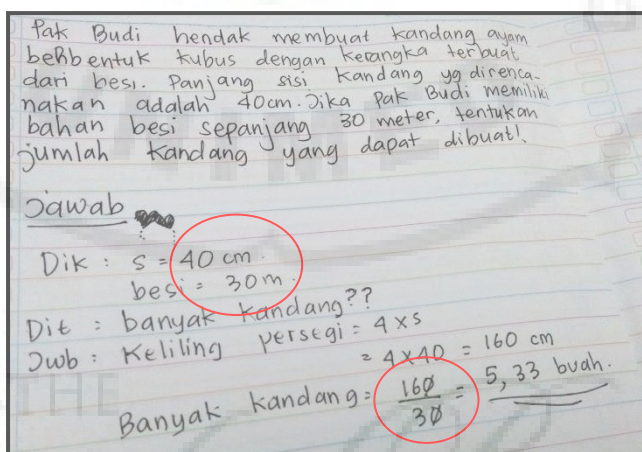 Pak Budi hendak membuat kandang ayam
berbentuk kubus dengan kerangka terbuat
dari besi. Panjang sisi kandang yg direnca-
nakan adalah 40cm. Jika Pak Budi memiliki
bahan besi sepanjang 30 meter, tentukan
jumlah kandang yang dapat dibuat!
Jawab
Dik : s = 40 cm.
besi = 30 m.
Dit : banyak kandang??
Jwb : Keliling persegi = 4 x s
= 4 x 40 = 160 cm
Banyak kandang = 160/30 = 5,33 buah.